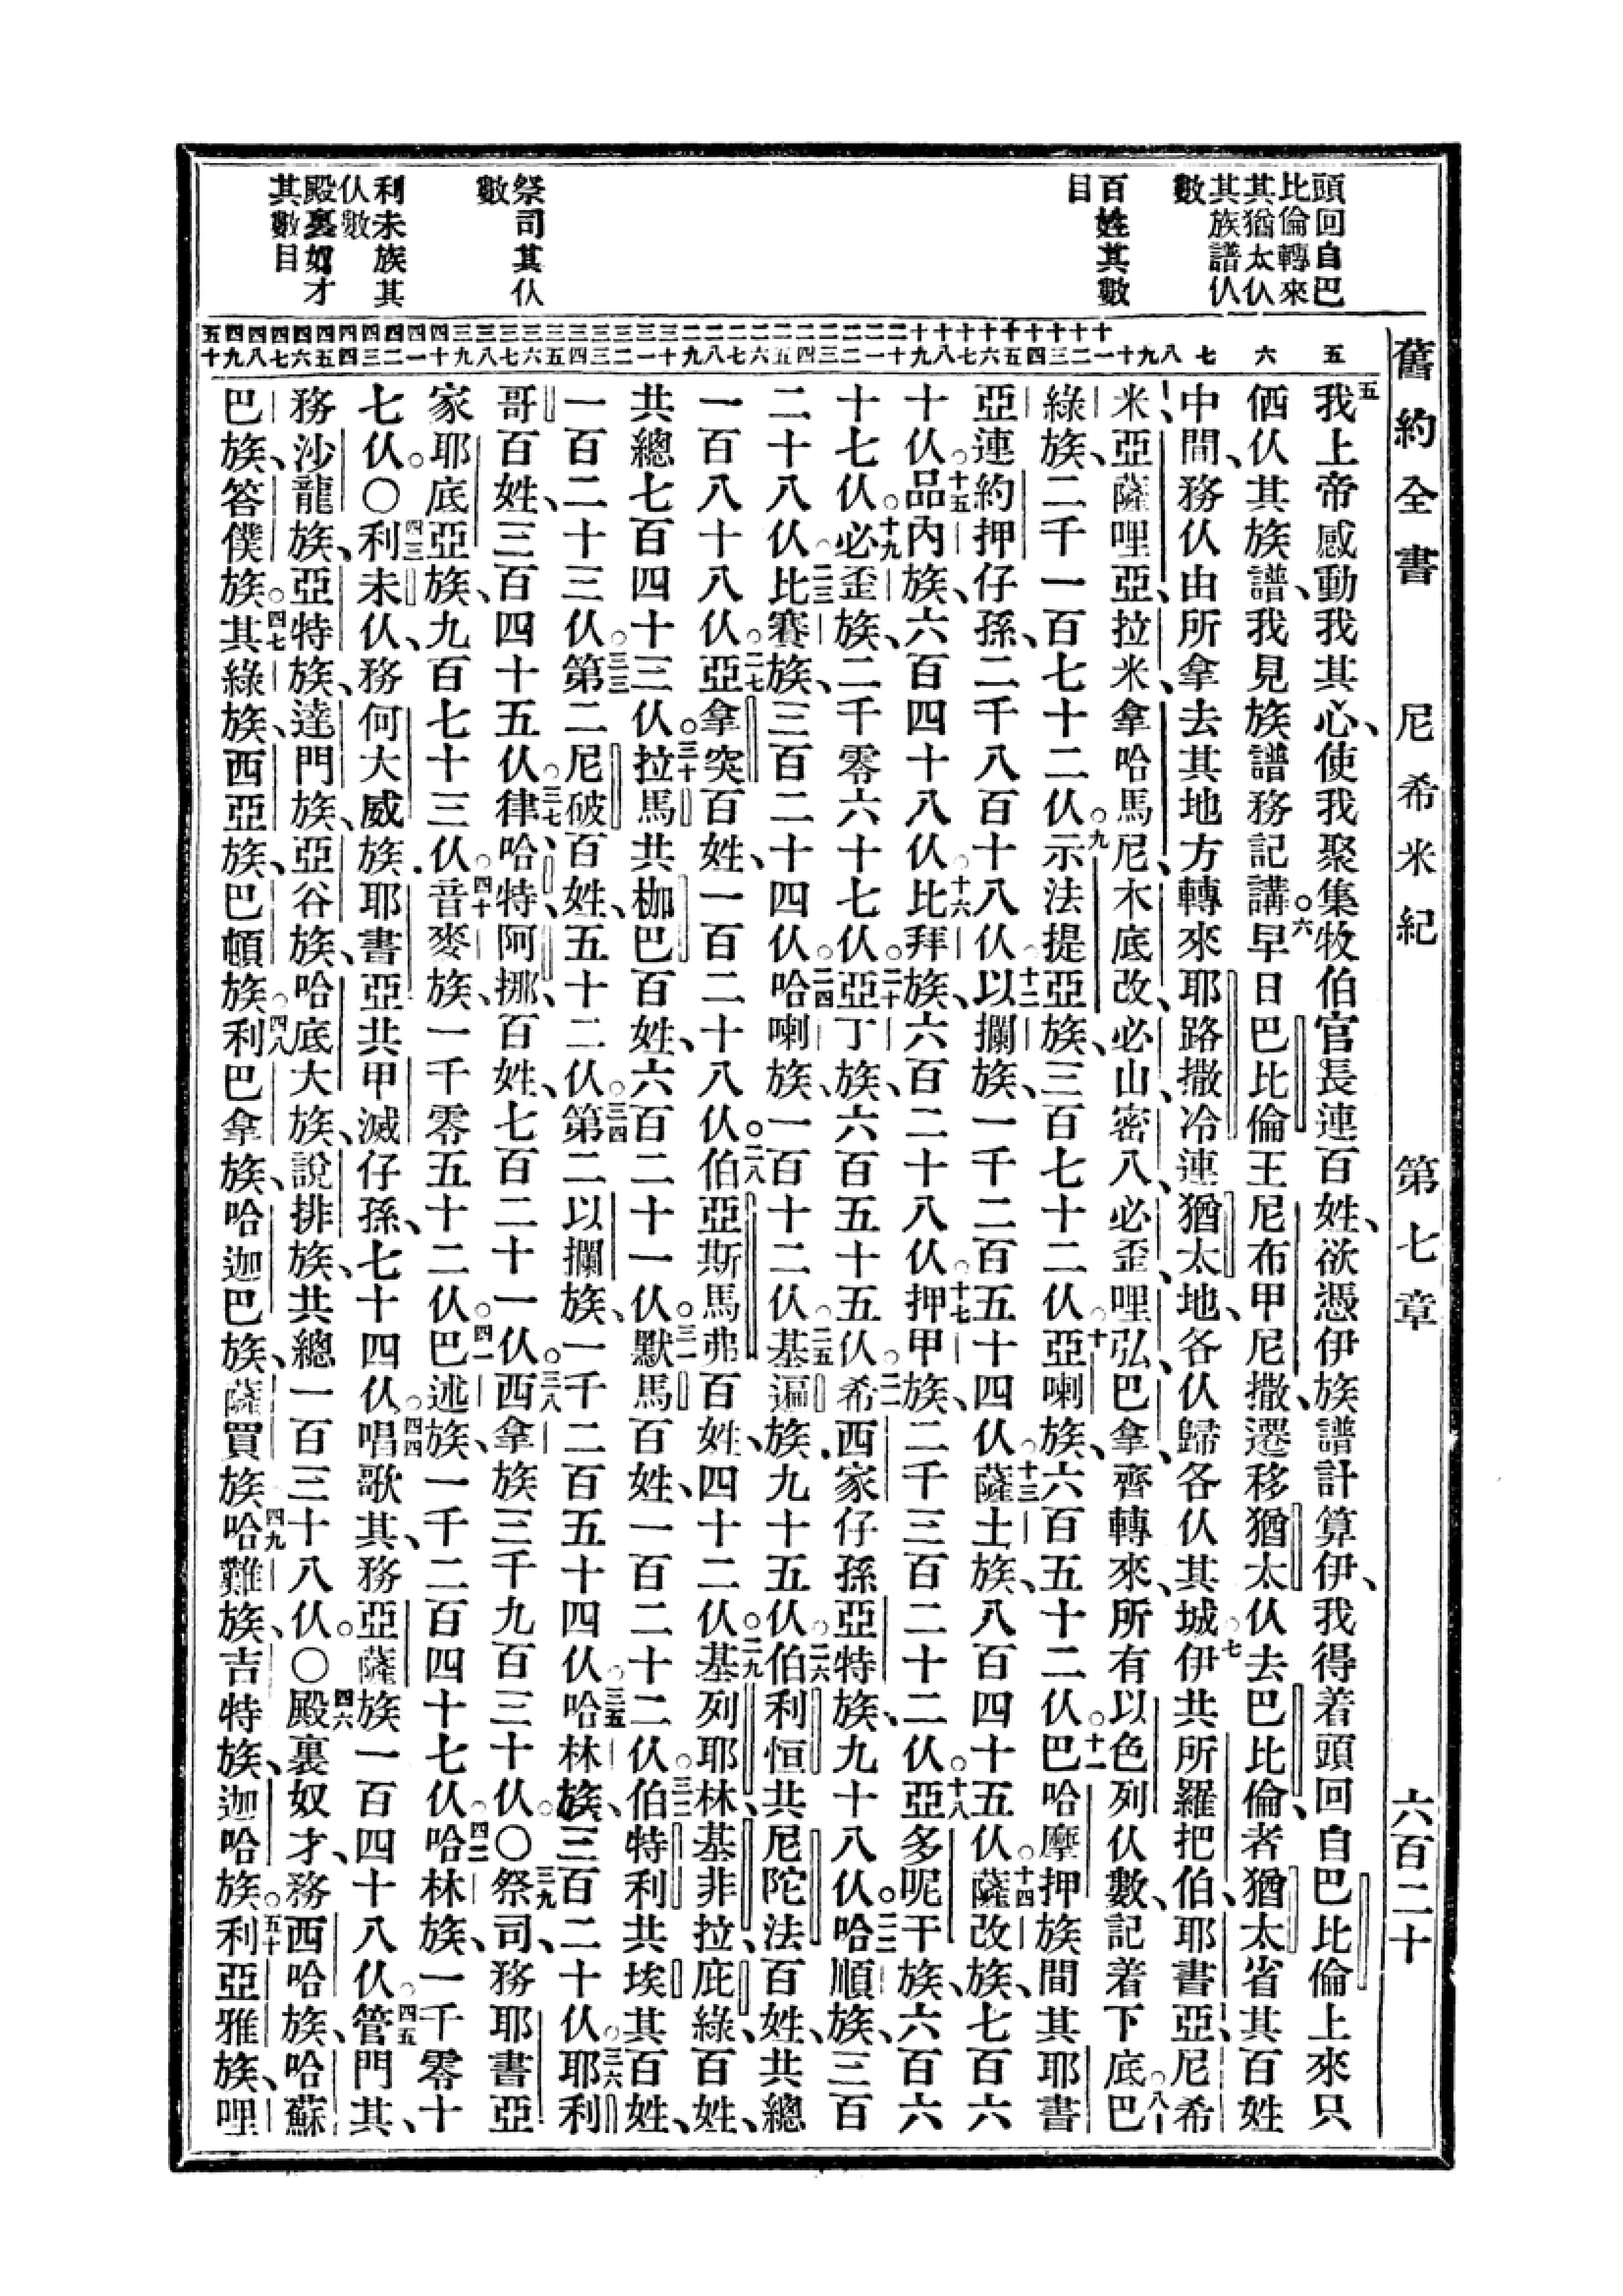 舊約全書 尼希米紀 第七章 六百二十
頭回自巴
比倫轉來
其猶太仫
其族譜仫
數
百姓其數
目
祭司其仫
數
利未族其
仫數
殿裏奴才
其數目
五 六 七 八 九 十 十一 十二 十三 十四 十五 十六 十七 十八 十九 二十 二一 二二 二三 二四 二五 二六 二七 二八 二九 三十 三一 三二 三三 三四 三五 三六 三七 三八 三九 四十 四一 四二 四三 四四 四五 四六 四七 四八 四九 五十
五我上帝感動我其心、使我聚集牧伯官長連百姓、欲憑伊族譜計算伊、我得着頭回自巴比倫上來只
伵仫其族譜、我見族譜務記講。六早日巴比倫王尼布甲尼撒、遷移猶太仫去巴比倫、者猶太省其百姓
中間、務仫由所拿去其地方轉來耶路撒冷連猶太地、各仫歸各仫其城。七伊共所羅把伯、耶書亞、尼希
米、亞薩哩亞、拉米、拿哈馬尼、木底改、必山、密八、必歪哩、弘、巴拿、齊轉來、所有以色列仫數、記着下底。八巴
綠族、二千一百七十二仫。九示法提亞族、三百七十二仫。十亞喇族、六百五十二仫。十一巴哈摩押族間其耶書
亞連約押仔孫、二千八百十八仫。十二以攔族、一千二百五十四仫。十三薩土族、八百四十五仫。十四薩改族、七百六
十仫。十五品內族、六百四十八仫。十六比拜族、六百二十八仫。十七押甲族、二千三百二十二仫。十八亞多呢干族、六百六
十七仫。十九必歪族、二千零六十七仫。二十亞丁族、六百五十五仫。二一希西家仔孫亞特族、九十八仫。二二哈順族、三百
二十八仫。二三比賽族、三百二十四仫。二四哈喇族、一百十二仫。二五基遍族、九十五仫。二六伯利恒共尼陀法百姓、共總
一百八十八仫。二七亞拿突百姓、一百二十八仫。二八伯亞斯馬弗百姓、四十二仫。二九基列耶林、基非拉、庇綠、百姓、
共總七百四十三仫。三十拉馬共枷巴百姓、六百二十一仫。三一默馬百姓、一百二十二仫。三二伯特利共埃其百姓、
一百二十三仫。三三第二尼破百姓、五十二仫。三四第二以攔族、一千二百五十四仫。三五哈林族、三百二十仫。三六耶利
哥百姓、三百四十五仫。三七律、哈特、阿挪、百姓、七百二十一仫。三八西拿族三千九百三十仫。〇三九祭司、務耶書亞
家耶底亞族、九百七十三仫。四十音麥族、一千零五十二仫。四一巴述族、一千二百四十七仫。四二哈林族、一千零十
七仫。〇四三利未仫、務何大威族、耶書亞共甲滅仔孫、七十四仫。四四唱歌其、務亞薩族一百四十八仫。四五管門其、
務沙龍族、亞特族、達門族、亞谷族、哈底大族、說排族、共總一百三十八仫。〇四六殿裏奴才、務西哈族、哈蘇
巴族、答僕族。四七其綠族、西亞族、巴頓族。四八利巴拿族、哈迦巴族、薩買族。四九哈難族、吉特族、迦哈族。五十利亞雅族、哩